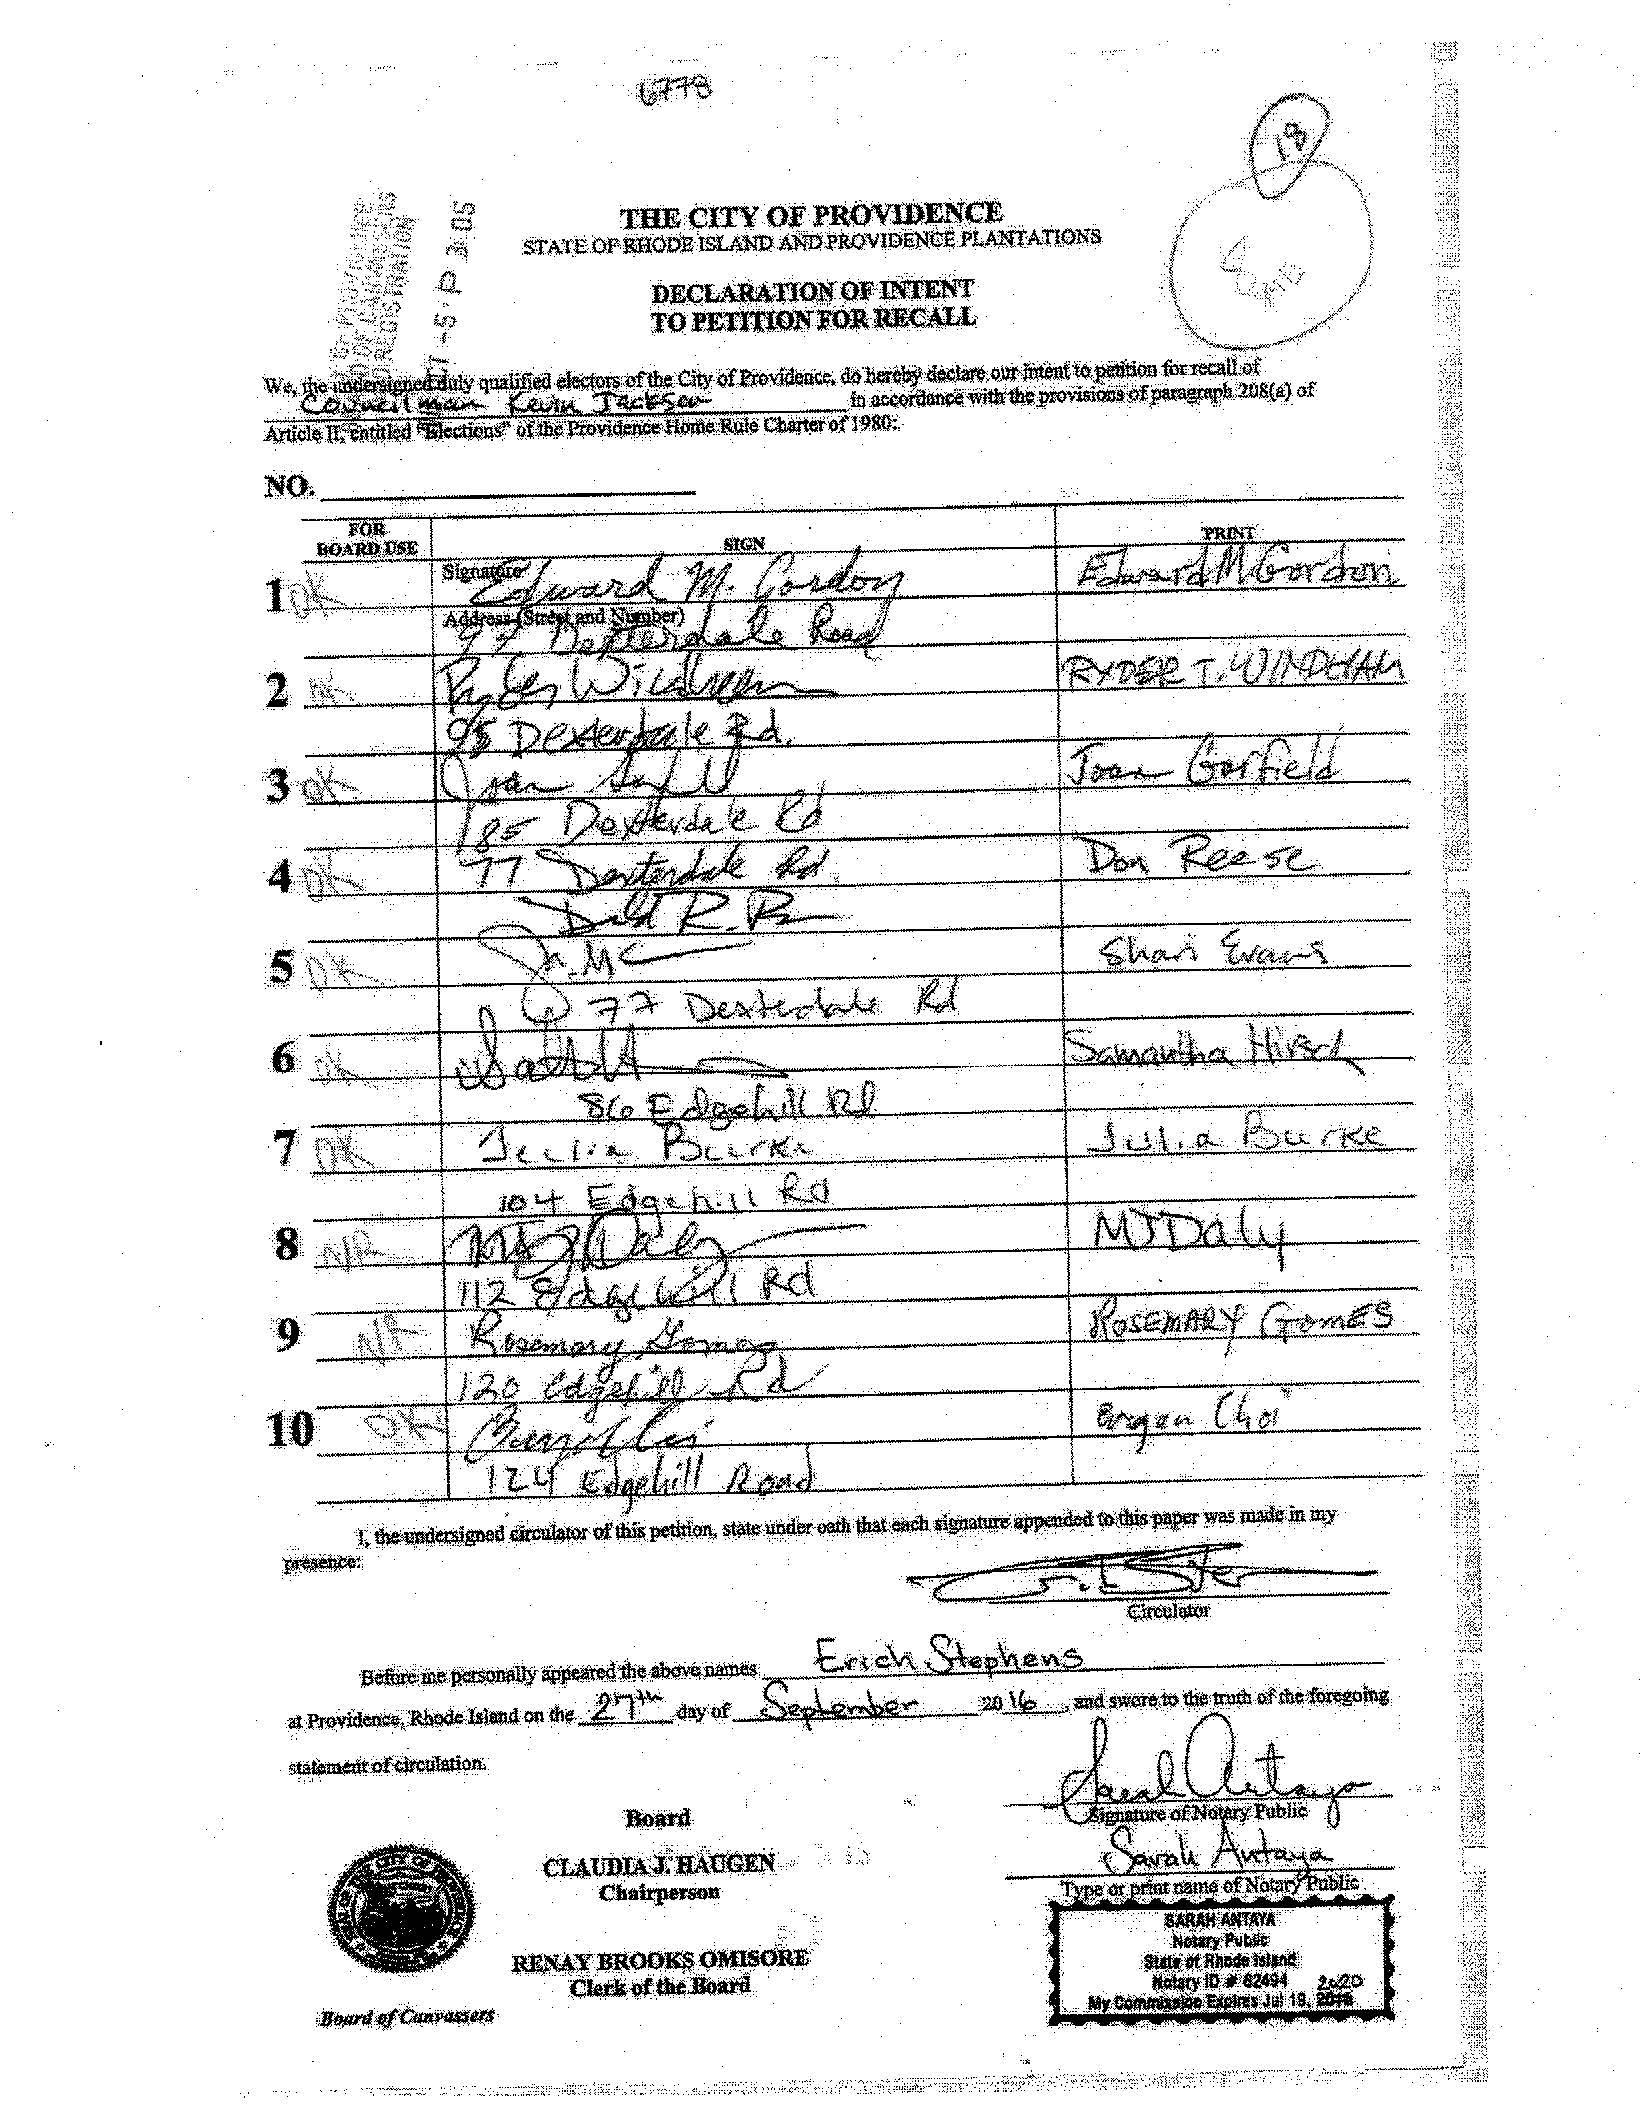 6778
19
8
THE CITY OF PROVIDENCE
STATE OF RHODE ISLAND AND PROVIDENCE PLANTATIONS
DECLARATION OF INTENT
TO PETITION FOR RECALL
-5 P 3:05
We, the undersigned duly qualified electors of the City of Providence, do hereby declare our intent to petition for recall of
Councilman Kevin Jackson in accordance with the provisions of paragraph 208(a) of
Article II, entitled "Elections" of the Providence Home Rule Charter of 1980:
NO.
FOR BOARD USE SIGN PRINT
1 OK Signature Edward M. Gordon Edward M Gordon
Address (Street and Number)
97 Dexterdale Road
2 OK Ryder Windham RYDER T. WINDHAM
95 Dexterdale Rd.
3 OK Joan Garfield Joan Garfield
185 Dexterdale Rd
4 OK 77 Dexterdale Rd. Don Reese
5 OK Shari Evans
77 Dexterdale Rd
6 OK Samantha Hirsch
86 Edgehill Rd
7 OK Julia Burke Julia Burke
104 Edgehill Rd
8 N/R MJ Daly
112 Edgehill Rd
9 N/R Rosemary Gomes ROSEMARY GOMES
120 Edgehill Rd
10 OK Choi
124 Edgehill Road
I, the undersigned circulator of this petition, state under oath that each signature appended to this paper was made in my
presence:
Circulator
Before me personally appeared the above names Erich Stephens
at Providence, Rhode Island on the 27th day of September 2016, and swore to the truth of the foregoing
statement of circulation.
Sarah Antaya
Signature of Notary Public
Sarah Antaya
Type or print name of Notary Public
Board
CLAUDIA J. HAUGEN
Chairperson
RENAY BROOKS OMISORE
Clerk of the Board
Board of Canvassers
SARAH ANTAYA
Notary Public
State of Rhode Island
Notary ID # 62494
2020
My Commission Expires Jul 19,